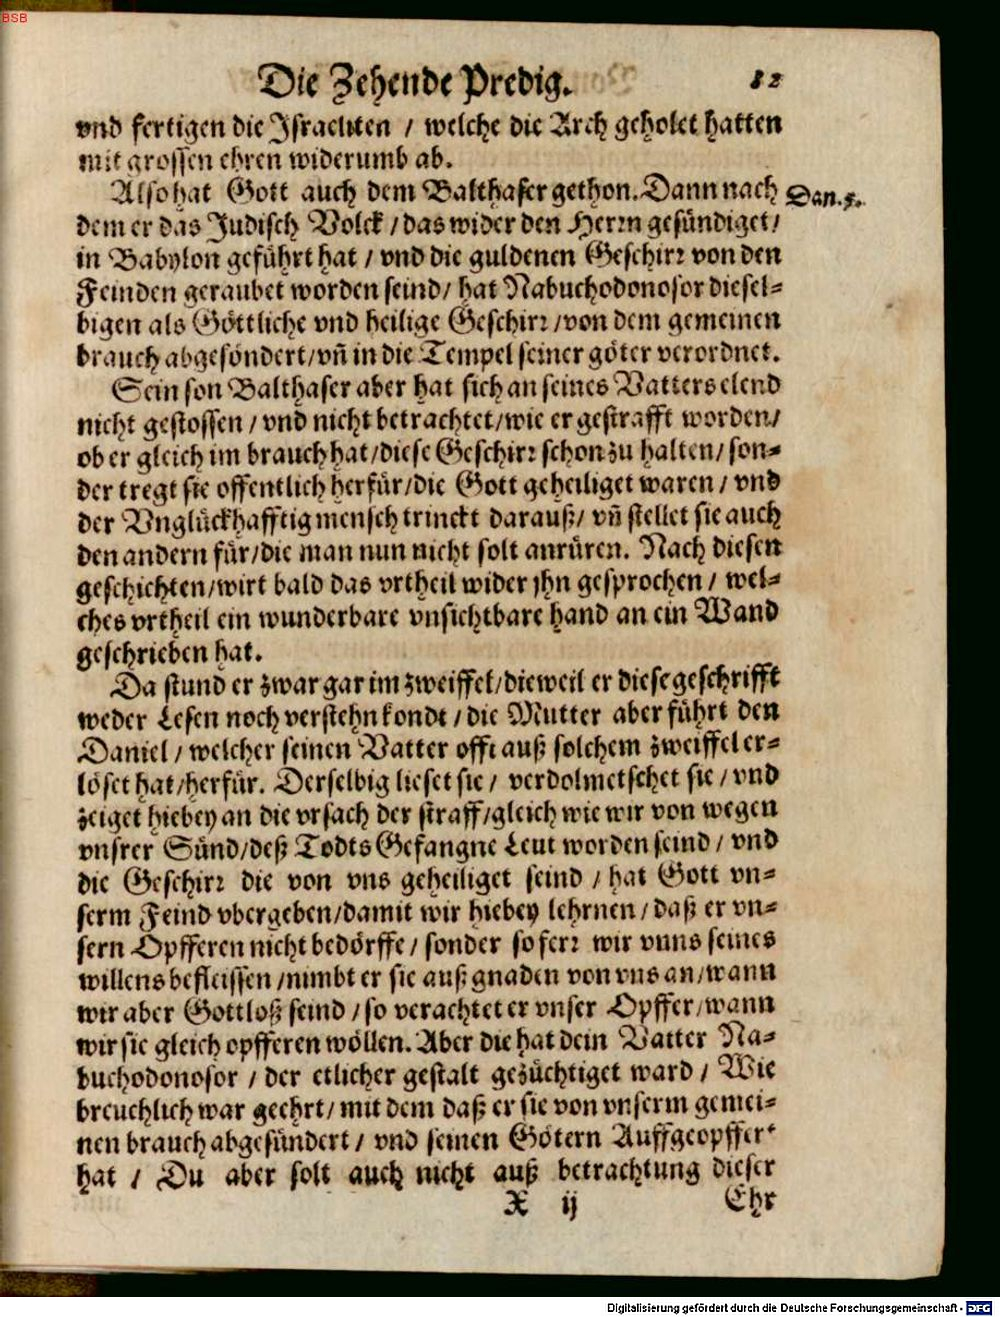 BSB
Die Zehende Predig. 82
vnd fertigen die Israeliten / welche die Arch geholet hatten
mit grossen ehren widerumb ab.
Also hat Gott auch dem Balthaser gethon. Dann nach Dan. 5.
dem er das Judisch Volck / das wider den Herrn gesündiget /
in Babylon geführt hat / vnd die guldenen Geschirr von den
Feinden geraubet worden seind / hat Nabuchodonosor diesel-
bigen als Göttliche vnd heilige Geschirr / von dem gemeinen
brauch abgesöndert / vñ in die Tempel seiner göter verordnet.
Sein son Balthaser aber hat sich an seines Vatters elend
nicht gestossen / vnd nicht betrachtet / wie er gestrafft worden /
ob er gleich im brauch hat / diese Geschirr schon zu halten / son-
der tregt sie offentlich herfür / die Gott geheiliget waren / vnd
der Vnglückhafftig mensch trinckt darauß / vñ stellet sie auch
den andern für / die man nun nicht solt anrüren. Nach diesen
geschichten / wirt bald das vrtheil wider jhn gesprochen / wel-
ches vrtheil ein wunderbare vnsichtbare hand an ein Wand
geschrieben hat.
Da stund er zwar gar im zweiffel / dieweil er diese geschrifft
weder Lesen noch verstehn kondt / die Mutter aber führt den
Daniel / welcher seinen Vatter offt auß solchem zweiffel er-
löset hat / herfür. Derselbig lieset sie / verdolmetschet sie / vnd
zeiget hiebey an die vrsach der straff / gleich wie wir von wegen
vnsrer Sünd / deß Todts Gefangne Leut worden seind / vnd
die Geschirr die von vns geheiliget seind / hat Gott vn-
serm Feind vbergeben / damit wir hiebey lehrnen / daß er vn-
sern Opfferen nicht bedörffe / sonder so ferr wir vnns seines
willens befleissen / nimbt er sie auß gnaden von vns an / wann
wir aber Gottloß seind / so verachtet er vnser Opffer / wann
wir sie gleich opfferen wöllen. Aber die hat dein Vatter Na-
buchodonosor / der etlicher gestalt gezüchtiget ward / Wie
breuchlich war geehrt / mit dem daß er sie von vnserm gemei-
nen brauch abgesündert / vnd seinen Götern Auffgeopffert
hat / Du aber solt auch nicht auß betrachtung dieser
X ij Ehr
Digitalisierung gefördert durch die Deutsche Forschungsgemeinschaft - DFG